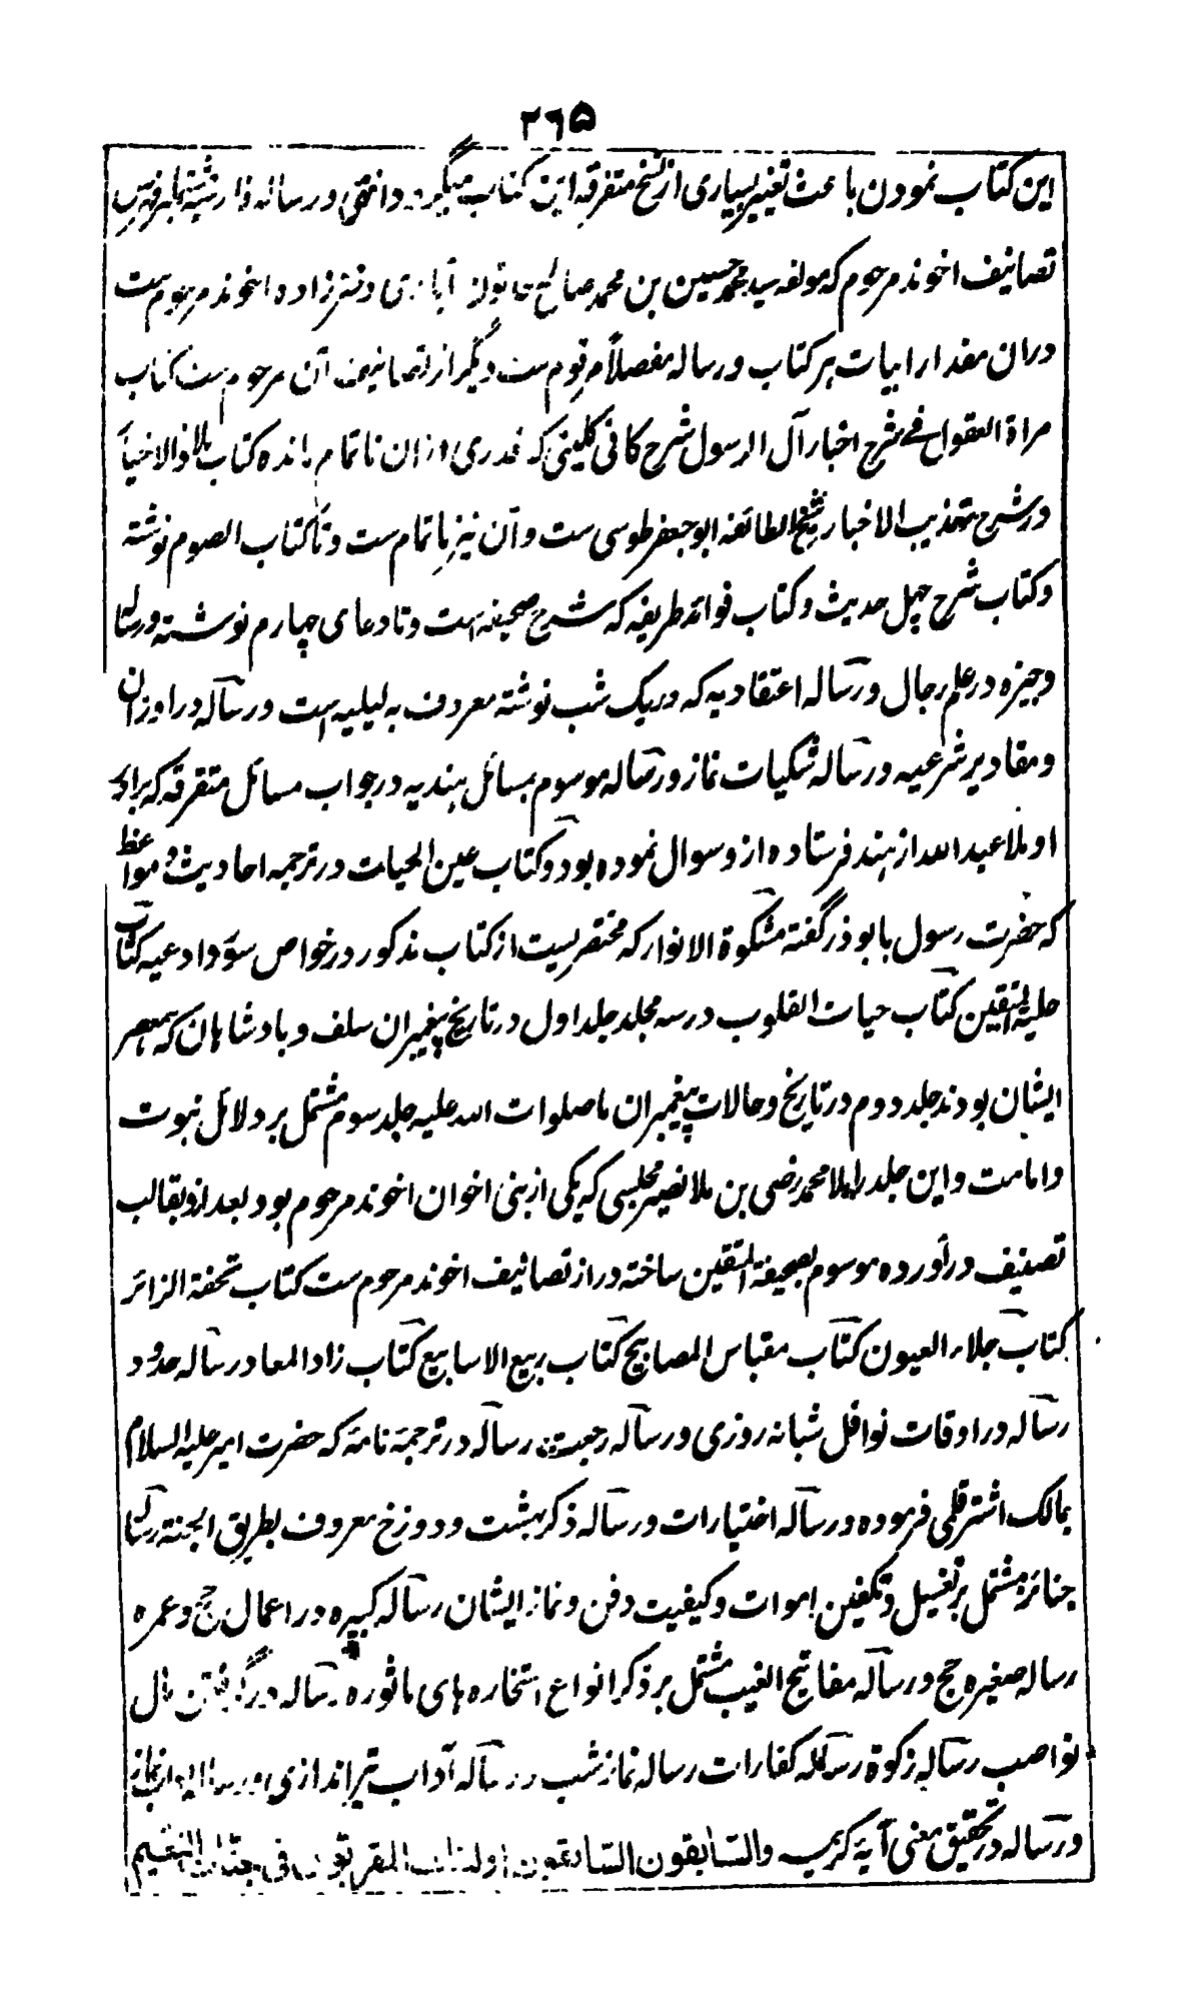 ۲۶۵
این کتاب نمودن باعث تغییر بسیاری از نسخ متفرقه این کتاب میگردد انتهی و رساله
تصانیف اخوند مرحوم که مولفه سید محمد حسین بن محمد صالح خاتون آبادی دخترزاده اخوند مرحوم ست
دران مقدار ابیات هر کتاب و رساله مفصلاً مرقوم ست دیگر از تصانیف آن مرحوم ست کتاب
مراة العقول فے شرح اخبار آل الرسول شرح کافی کلینی که قدری ازان ناتمام مانده کتاب ملاذ الاخیار
در شرح تهذیب الاخبار شیخ الطائفه ابو جعفر طوسی ست و آن نیز ناتمام ست و تا کتاب الصوم نوشته
و کتاب شرح چهل حدیث و کتاب فوائد طریفه که شرح صحیفه است و تا دعای چهارم نوشته و رساله
وجیزه در علم رجال و رساله اعتقادیه که در یک شب نوشته معروف به لیلیه است و رساله در اوزان
و مقادیر شرعیه و رساله شکیات نماز و رساله موسوم بمسائل هندیه در جواب مسائل متفرقه که برادر
او ملا عبد الله از هند فرستاده ازو سوال نموده بود و کتاب عین الحیات در ترجمه احادیث و مواعظ
که حضرت رسول بابوذر گفته مشکوة الانوار که مختصریست از کتاب مذکور در خواص سور و ادعیه کتاب
حلیة المتقین کتاب حیات القلوب در سه مجلد جلد اول در تاریخ پیغمبران سلف و بادشاهان که همعصر
ایشان بودند جلد دوم در تاریخ و حالات پیغمبران ما صلوات الله علیه جلد سوم مشتمل بر دلائل نبوت
و امامت و این جلد را ملا محمد رضی بن ملا نصیر مجلسی که یکی از بنی اخوان اخوند مرحوم بود بعد ازو بقالب
تصنیف در آورده موسوم بصحیفة المتقین ساخته و از تصانیف اخوند مرحوم ست کتاب تحفة الزائر
کتاب جلاء العیون کتاب مقباس المصابیح کتاب ربیع الاسابیع کتاب زاد المعاد رساله حدود
رساله در اوقات نوافل شبانه روزی و رساله رجعت رساله در ترجمه نامه که حضرت امیر علیه السلام
بمالک اشتر قلمی فرموده و رساله اختیارات و رساله ذکر بهشت و دوزخ معروف بطریق الجنة رساله
جنائز مشتمل بر تغسیل و تکفین اموات و کیفیت دفن و نماز ایشان رساله کبیره در اعمال حج و عمره
رساله صغیره حج و رساله مفاتیح الغیب مشتمل بر ذکر انواع استخاره های ماثوره رساله در گرفتن مال
نواصب رساله زکوة رساله کفارات رساله نماز شب و رساله آداب تیر اندازی و رساله
و رساله در تحقیق معنی آیه کریمه والسّابقون السّابقون اولئک المقربون فی جنّات النعیم